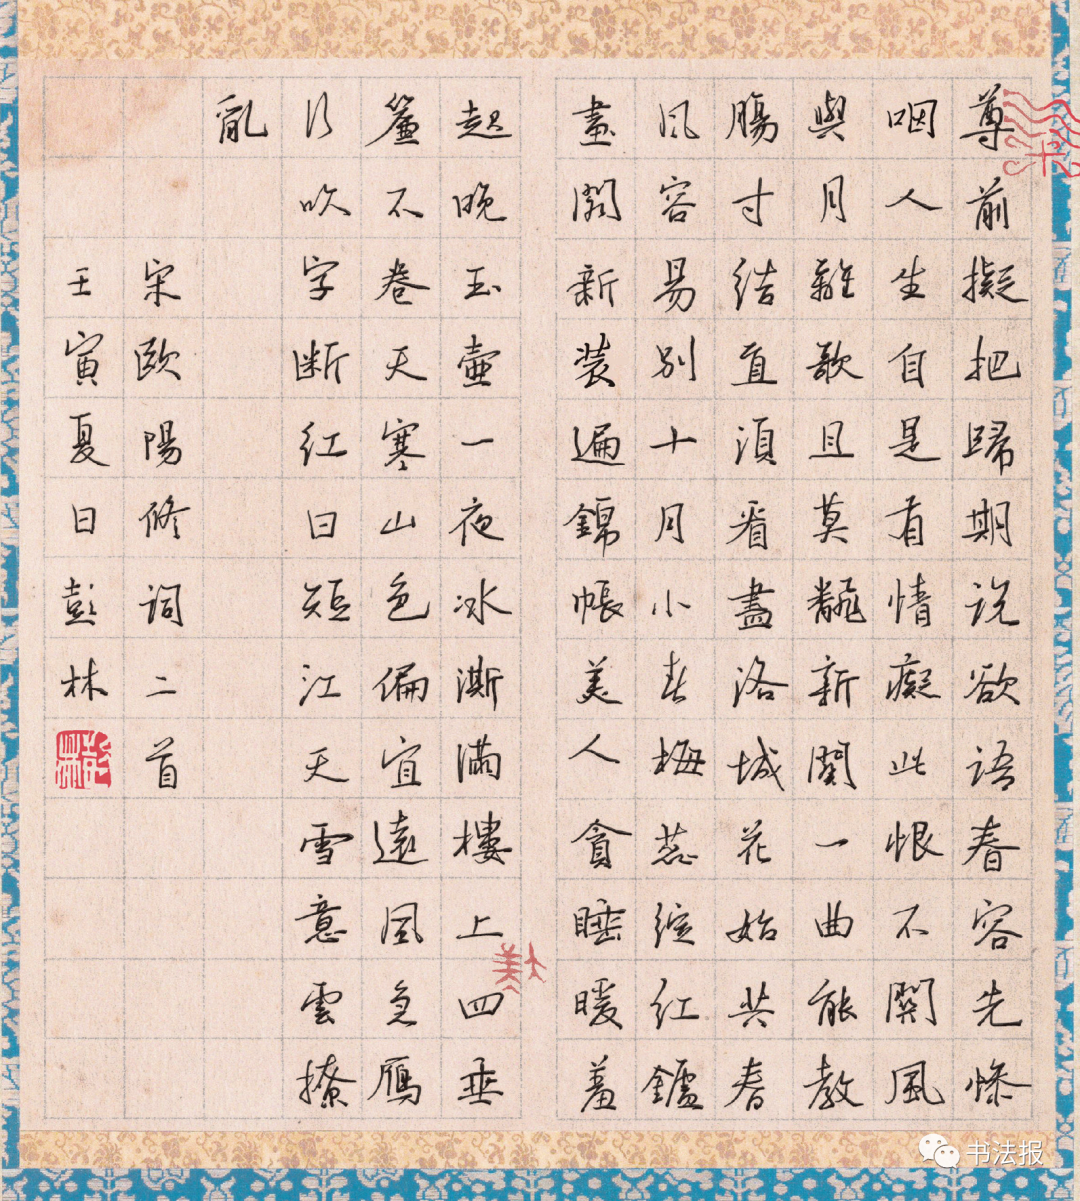 尊前擬把歸期説欲語春容先慘
咽人生自是有情癡此恨不關風
與月離歌且莫飜新闋一曲能教
腸寸結直須看盡洛城花始共春
風容易別十月小春梅蕊綻紅鑪
畫閣新装遍錦帳美人貪睡暖羞
起晚玉壺一夜冰澌滿樓上四垂
簾不卷天寒山色偏宜遠風急雁
行吹字断紅日短江天雪意雲撩
亂
宋歐陽修詞二首
壬寅夏日彭林
彭林
书法报